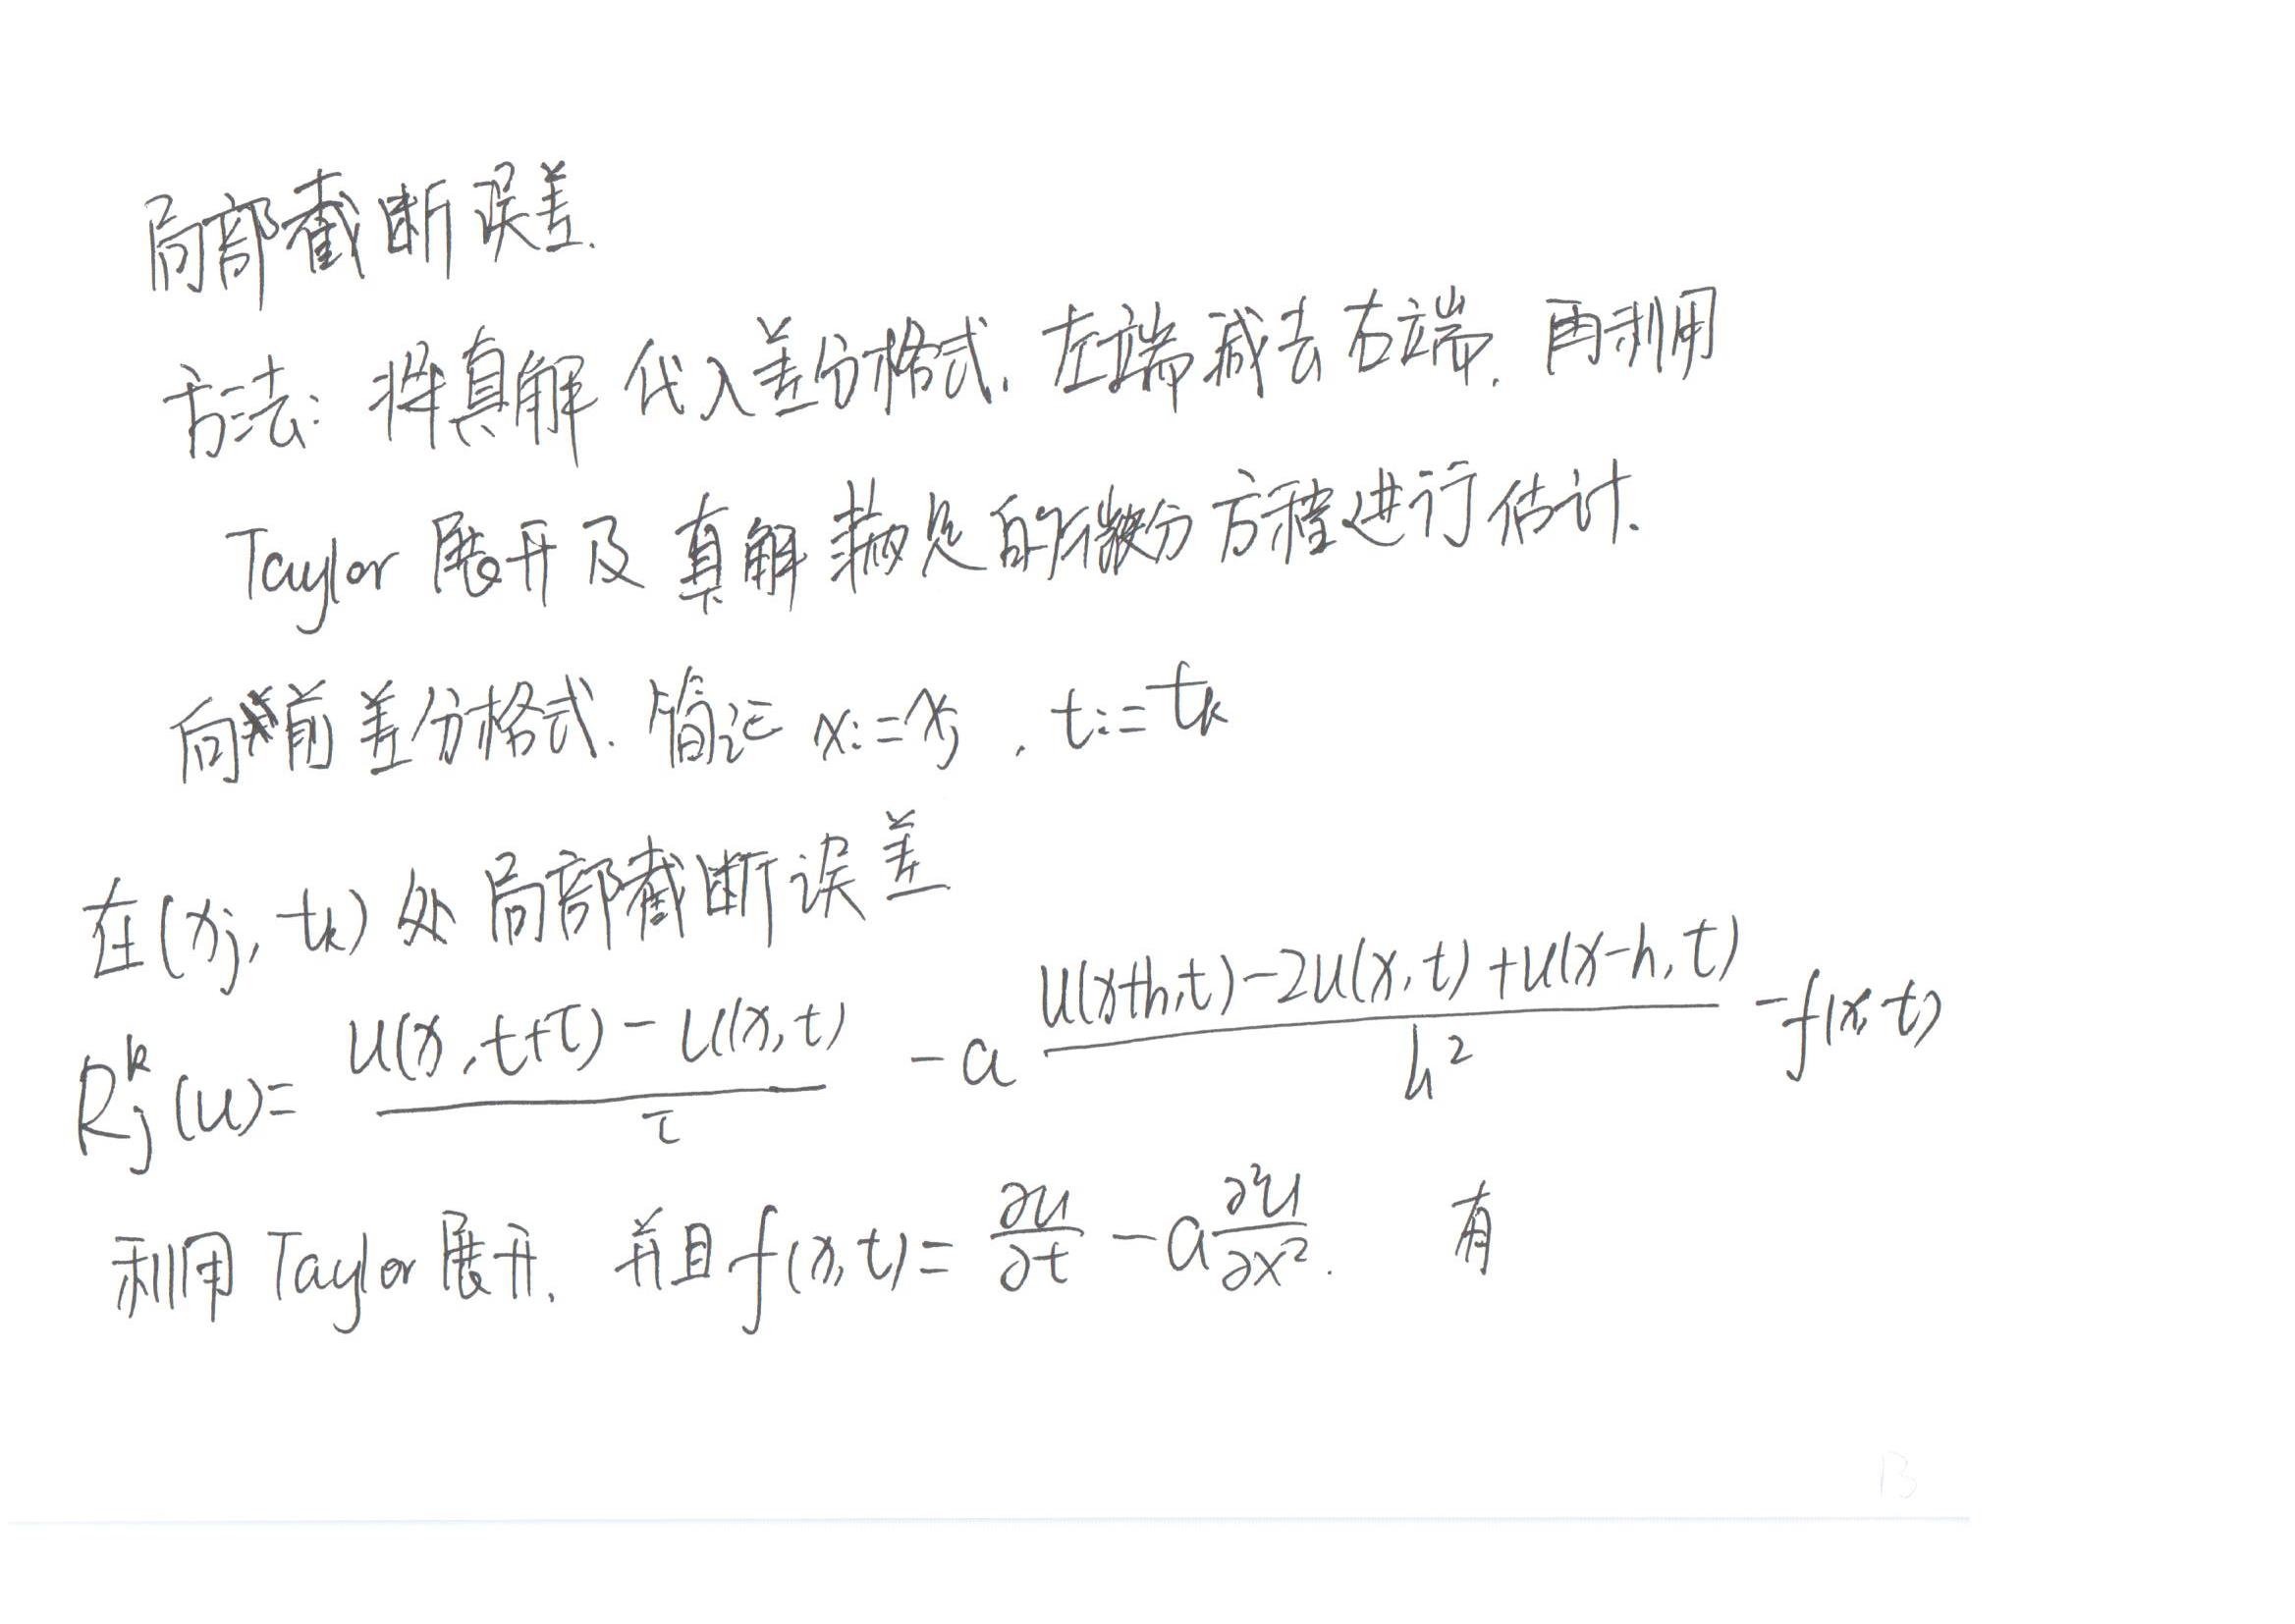 局部截断误差.
方法: 将真解代入差分格式, 左端减去右端, 再利用
Taylor 展开及真解满足的微分方程进行估计.
向前差分格式. 简记 x:=x_j , t:=t_k
在(x_j, t_k) 处局部截断误差
R_j^k(u)= \frac{u(x,t+τ)-u(x,t)}{τ} -a \frac{u(x+h,t)-2u(x,t)+u(x-h,t)}{h^2} -f(x,t)
利用 Taylor 展开, 并且 f(x,t)= \frac{∂u}{∂t} -a\frac{∂^2u}{∂x^2}. 有
13